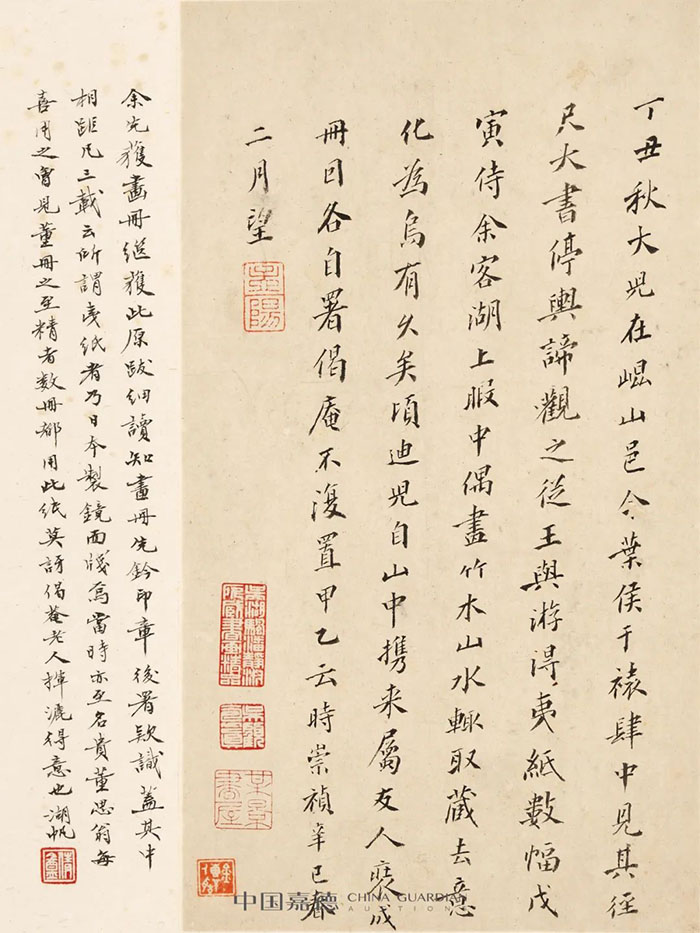 丁丑秋大兒在崐山邑令葉侯于裱肆中見其徑
尺大書停輿諦觀之從王與游淂夷紙數幅戊
寅侍余客湖上暇中偶畫竹木山水輒取藏去意
化為烏有久矣頃迪兒自山中携来屬友人裒成
冊囙各自署偈庵不復置甲乙云時崇禎辛巳春
二月望
孟陽
某景書屋
余先獲畫冊繼獲此原跋細讀知畫冊先鈐印章後署欵識蓋其中
相距凡三載云所謂夷紙者乃日本製鏡面牋爲當時亦至名貴董思翁每
喜用之曾見董冊之至精者數冊都用此紙莫訝偈菴老人揮灑得意也湖帆
中国嘉德 CHINA GUARDIAN AUCTIONS